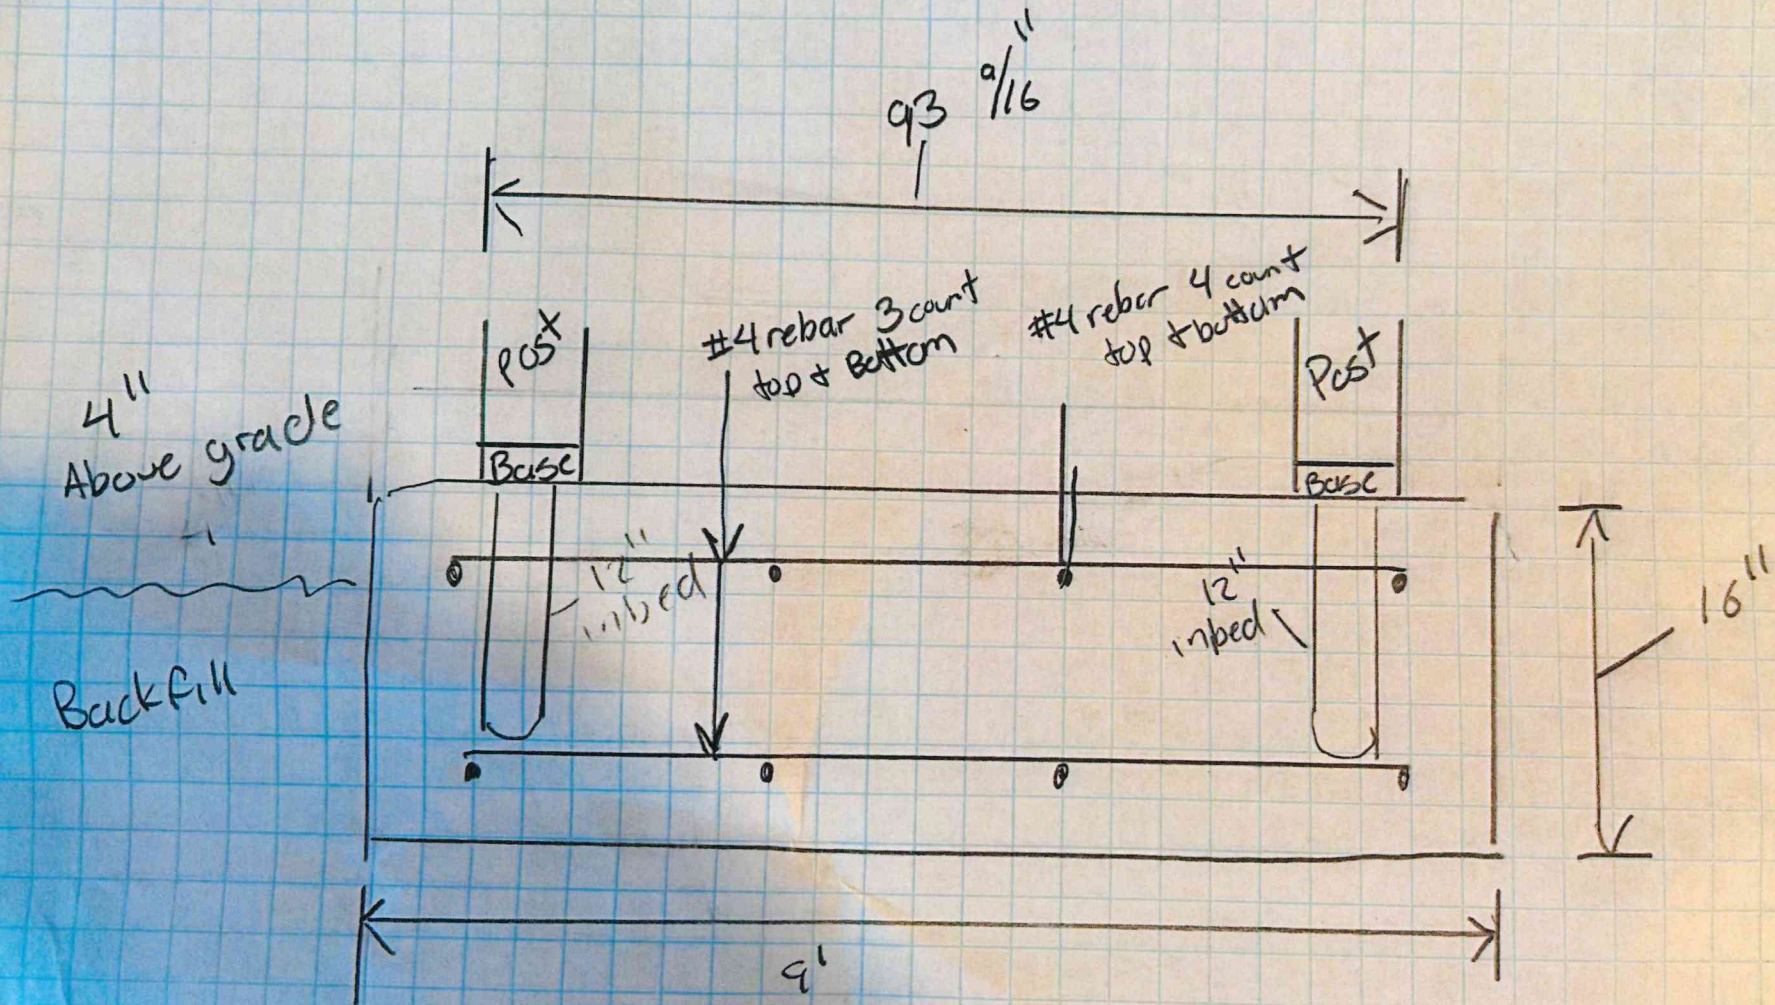 93 9/16"
#4 rebar 3 count
top & Bottom
#4 rebar 4 count
top & bottom
Post
Post
4"
Above grade
Base
Base
12"
inbed
12"
inbed
16"
Backfill
9'